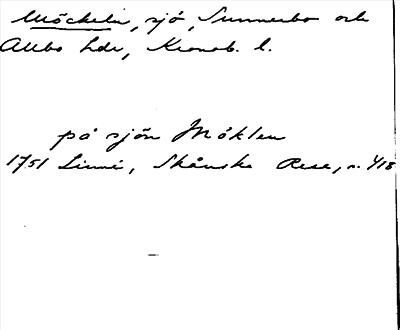 Möckeln, sjö, Sunnerbo och
Allbo hdr, Kronob. l.
på sjön Möklen
1751 Linné, Skånska Resa, s. 418